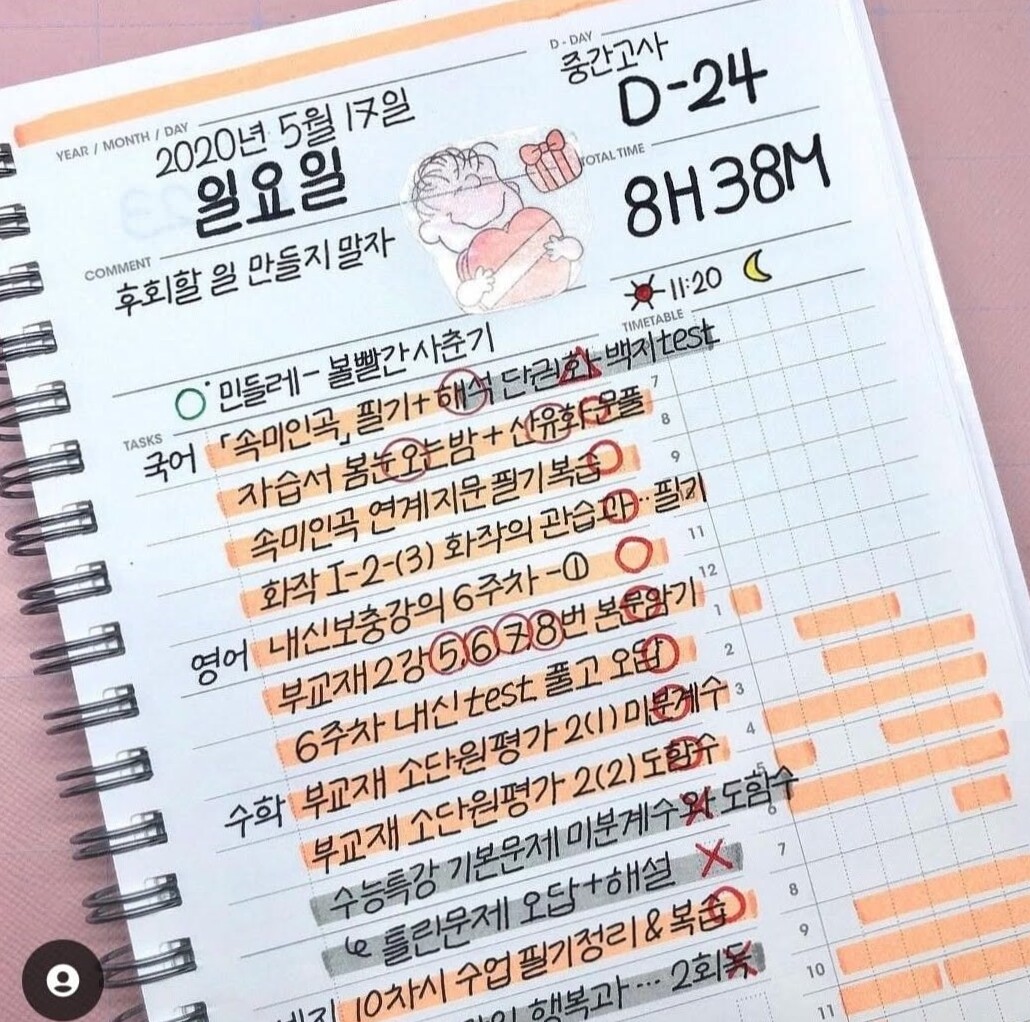 D - DAY
중간고사
D-24
YEAR / MONTH / DAY
2020년 5월 17일
일요일
TOTAL TIME
8H 38M
COMMENT
후회할 일 만들지 말자
11:20
TIMETABLE
민들레 - 볼빨간사춘기
TASKS
국어 「속미인곡」 필기+해석 단권화-백지test
자습서 봄눈오는밤+산유화 문풀
속미인곡 연계지문 필기복습
화작 I-2-(3) 화작의 관습과… 필기
영어 내신보충강의 6주차-①
부교재 2강 5,6,7,8번 본문암기
6주차 내신test 풀고 오답
수학 부교재 소단원평가 2(1) 미분계수
부교재 소단원평가 2(2) 도함수
수능특강 기본문제 미분계수와 도함수
↳ 틀린문제 오답+해설
10차시 수업 필기정리 & 복습
행복과… 2회독
7
8
9
11
12
1
2
3
4
5
6
7
8
9
10
11